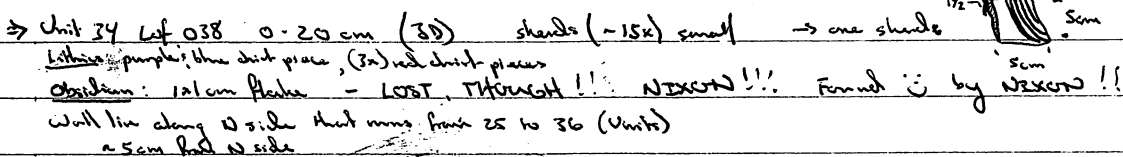 1½
⇒ Unit 34 Lot 038 0-20 cm (3D) sherds (~15x) small → one sherds
5cm
5cm
Lithics: purple; blue chert piece, (3x) red chert pieces
Obsidian: 1x1cm flake - LOST, THOUGH!!! NIXON!!! Found ☺ by NIXON!!
Wall line along N side that runs from 25 to 36 (Units)
~ 5cm from N side